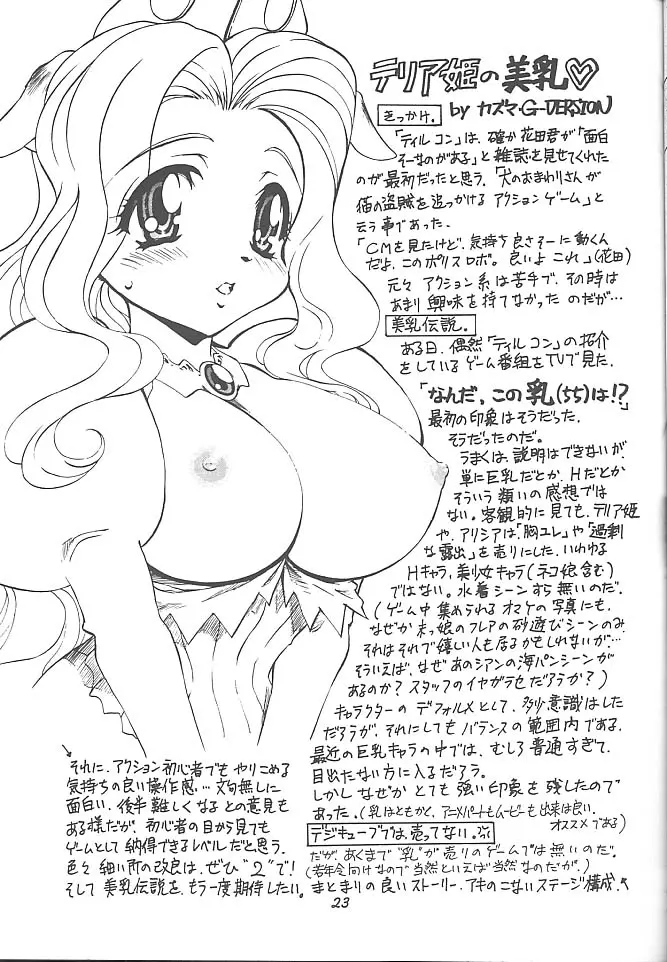 テリア姫の美乳♡
by カズマ・G-VERSION
きっかけ。
「テイルコン」は、確か花田君が「面白
そーなのがある」と雑誌を見せてくれた
のが最初だったと思う。「犬のおまわりさんが
猫の盗賊を追っかけるアクションゲーム」と
云う事であった。
「CMを見たけど、気持ち良さそーに動くん
だよ、このポリスロボ。良いよこれ」(花田)
元々アクション系は苦手で、その時は
あまり興味を持てなかったのだが…
美乳伝説。
ある日、偶然「テイルコン」の紹介
をしているゲーム番組をTVで見た。
「なんだ、この乳(ちち)は!?」
最初の印象はそうだった。
そうだったのだ。
うまくは、説明はできないが、
単に巨乳だとか、Hだとか
そういう類いの感想では
ない。客観的に見ても、テリア姫
や、アリシアは「胸ユレ」や「過剰
な露出」を売りにした、いわゆる
Hキャラ、美少女キャラ(ネコ娘含む)
ではない。水着シーンすら無いのだ。
(ゲーム中集められるオマケの写真にも、
なぜか末っ娘のフレアの砂遊びシーンのみ。
それはそれで嬉しい人も居るかもしれないが…
そういえば、なぜあのシアンの海パンシーンが
あるのか?スタッフのイヤガラセだろうか?)
キャラクターのデフォルメとして、多少意識はした
だろうが、それにしてもバランスの範囲内である。
最近の巨乳キャラの中では、むしろ普通すぎて、
目立たない方に入るだろう。
しかしなぜかとても強い印象を残したので
あった。(乳はともかく、アニメパートもムービーも出来は良い。
オススメである)
デジキューブでは売ってない。
だが、あくまで"乳"が売りのゲームでは無いのだ。
(若年令向けなので当然といえば当然なのだが。)
まとまりの良いストーリー、アキのこないステージ構成、
それに、アクション初心者でもやりこめる
気持ちの良い操作感…文句無しに
面白い。後半難しくなるとの意見も
ある様だが、初心者の目から見ても
ゲームとして納得できるレベルだと思う。
色々細い所の改良は、ぜひ"2"で!
そして美乳伝説を、もう一度期待したい。
23